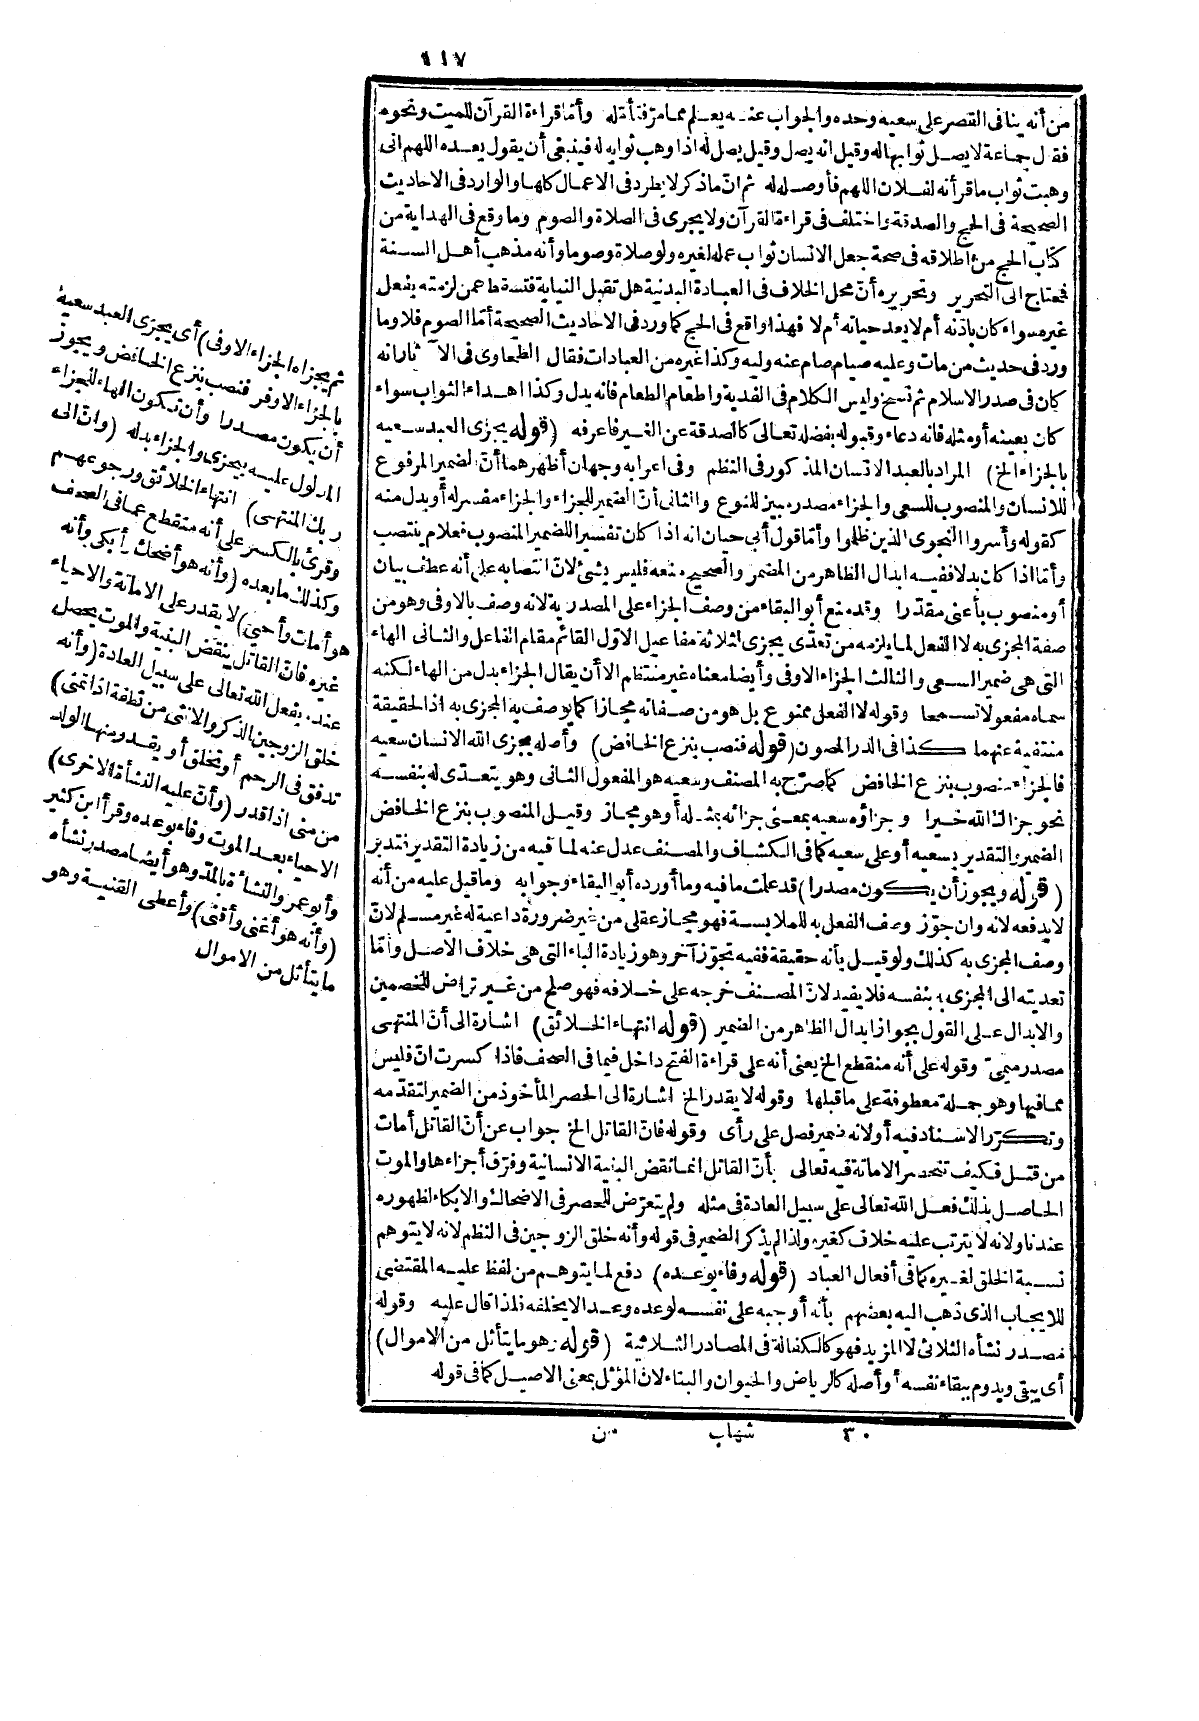 ١١٧
من أنه ينافى القصر على سعيه وحده والجواب عنه يعلم مما مرّ فتأمّله وأمّا قراءة القرآن للميت ونحوه
فقال جماعة لا يصل ثوابها له وقيل انه يصل وقيل يصل له اذا وهب ثوابه له فينبغى أن يقول بعده اللهم انى
وهبت ثواب ما قرأته لفلان اللهم فأوصله له ثم انّ ما ذكر لا يطرد فى الاعمال كلها والوارد فى الاحاديث
الصحيحة فى الحج والصدقة واختلف فى قراءة القرآن ولا يجرى فى الصلاة والصوم وما وقع فى الهداية من
كتاب الحج من اطلاقه فى صحة جعل الانسان ثواب عمله لغيره ولو صلاة وصوما وأنه مذهب أهل السنة
فمحتاج الى التحرير وتحريره أنّ محل الخلاف فى العبادة البدنية هل تقبل النيابة فتسقط عمن لزمته بفعل
غيره سواء كان باذنه أم لا بعد حياته أم لا فهذا واقع فى الحج كما ورد فى الاحاديث الصحيحة أمّا الصوم فلا وما
ورد فى حديث من مات وعليه صيام صام عنه وليه وكذا غيره من العبادات فقال الطحاوى فى الآثار انه
كان فى صدر الاسلام ثم نسخ وليس الكلام فى الفدية واطعام الطعام فانه بدل وكذا اهداء الثواب سواء
كان بعينه أو مثله فانه دعاء وقبوله بفضله تعالى كالصدقة عن الغير فاعرفه (قوله يجزى العبد سعيه
بالجزاء الخ) المراد بالعبد الانسان المذكور فى النظم وفى اعرابه وجهان أظهرهما أنّ لضمير المرفوع
للانسان والمنصوب للسعى والجزاء مصدر مبين للنوع والثانى أنّ الضمير للجزاء والجزاء مفسر له أو بدل منه
كقوله وأسروا النجوى الذين ظلموا وأمّا قول أبى حيان انه اذا كان تفسير اللضمير المنصوب فعلام ينتصب
وأمّا اذا كان بدلا ففيه ابدال الظاهر من المضمر والصحيح منعه فليس بشئ لانّ انتصابه على أنه عطف بيان
أو منصوب بأعنى مقدّرا وقد منع أبو البقاء من وصف الجزاء على المصدرية لانه وصف بالاوفى وهو من
صفة المجزى به لا الفعل لما يلزمه من تعدّى يجزى لثلاثة مفاعيل الاوّل القائم مقام الفاعل والثانى الهاء
التى هى ضمير السعى والثالث الجزاء الاوفى وأيضا معناه غير منتظم الا أن يقال الجزاء بدل من الهاء لكنه
سماه مفعولا تسمحا وقوله لا الفعل ممنوع بل هو من صفاته مجازا كما يوصف به المجزى به اذ الحقيقة
منتفية عنهما كذا فى الدر المصون (قوله فنصب بنزع الخافض) وأصله يجزى الله الانسان سعيه
فالجزاء منصوب بنزع الخافض كما صرّح به المصنف وسعيه هو المفعول الثانى وهو يتعدّى له بنفسه
نحو جزاك الله خيرا وجزاؤه سعيه بمعنى جزائه بمثله أو هو مجاز وقيل المنصوب بنزع الخافض
الضمير والتقدير بسعيه أو على سعيه كما فى الكشاف والمصنف عدل عنه لما فيه من زيادة التقدير فتدبر
(قوله ويجوز أن يكون مصدرا) قد علمت ما فيه وما أورده أبو البقاء وجوابه وما قيل عليه من أنه
لا يدفعه لانه وان جوّز وصف الفعل به للملابسة فهو مجاز عقلى من غير ضرورة داعية له غير مسلم لانّ
وصف المجزى به كذلك ولو قيل بأنه حقيقة ففيه تجوّز آخر وهو زيادة الباء التى هى خلاف الاصل وأمّا
تعديته الى المجزى به بنفسه فلا يفيد لانّ المصنف خرجه على خلافه فهو صلح من غير تراض للخصمين
والابدال على القول بجواز ابدال الظاهر من الضمير (قوله انتهاء الخلائق) اشارة الى أنّ المنتهى
مصدر ميمىّ وقوله على أنه منقطع الخ يعنى أنه على قراءة الفتح داخل فيما فى الصحف فاذا كسرت انّ فليس
مما فيها وهو جملة معطوفة على ما قبلها وقوله لا يقدر الخ اشارة الى الحصر المأخوذ من الضمير لتقدّمه
وتكرّر الاسناد فيه أو لانه ضمير فصل على رأى وقوله فانّ القاتل الخ جواب عن أنّ القاتل أمات
من قتل فكيف تنحصر الاماتة فيه تعالى بأنّ القاتل انما نقض البنية الانسانية وفرّق أجزاءها والموت
الحاصل بذلك فعل الله تعالى على سبيل العادة فى مثله ولم يتعرّض للحصر فى الاضحاك والابكاء لظهوره
عندنا ولانه لا يترتب عليه خلاف كغيره ولذا لم يذكر الضمير فى قوله وأنه خلق الزوجين فى النظم لانه لا يتوهم
نسبة الخلق لغيره كما فى أفعال العباد (قوله وفاء بوعده) دفع لما يتوهم من لفظ عليه المقتضى
للايجاب الذى ذهب اليه بعضهم بأنه أوجبه على نفسه لوعده وعد الا يخلفه فلذا قال عليه وقوله
مصدر نشأه الثلاثى لا المزيد فهو كالكفالة فى المصادر الثلاثية (قوله وهو ما يتأثل من الاموال)
أى يبقى ويدوم ببقاء نفسه أو أصله كالرياض والحيوان والبناء لانّ المؤثل بمعنى الاصيل كما فى قوله
٣٠ شهاب من
ثم يجزاه الجزاء الاوفى) أى يجزى العبد سعيه
بالجزاء الاوفر فنصب بنزع الخافض ويجوز
أن يكون مصدرا وأن تكون الهاء للجزاء
المدلول عليه بيجزى والجزاء بدله (وانّ الى
ربك المنتهى) انتهاء الخلائق ورجوعهم
وقرئ بالكسر على أنه منقطع عما فى الصحف
وكذلك ما بعده (وأنه هو أضحك وأبكى وأنه
هو أمات وأحيى) لا يقدر على الاماتة والاحياء
غيره فانّ القاتل ينقض البنية والموت يحصل
عنده بفعل الله تعالى على سبيل العادة (وأنه
خلق الزوجين الذكر والانثى من نطفة اذا تمنى)
تدفق فى الرحم أو تخلق أو يقدر منها الولد
من منى اذا قدر (وأنّ عليه النشأة الاخرى)
الاحياء بعد الموت وفاء بوعده وقرأ ابن كثير
وأبو عمرو النشاءة بالمدّ وهو أيضا مصدر نشأه
(وأنه هو أغنى وأقنى) وأعطى القنية وهو
ما يتأثل من الاموال